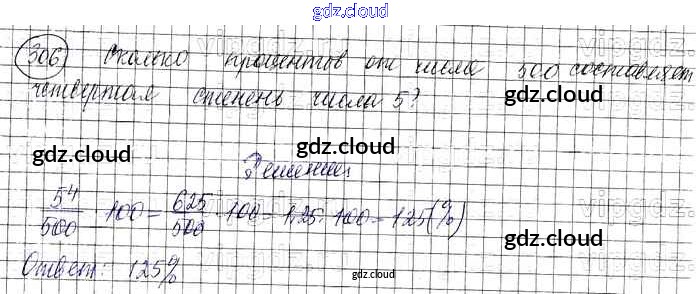 gdz.cloud
306 Сколько процентов от числа 500 составляет
четвертая степень числа 5?
gdz.cloud
gdz.cloud
gdz.cloud
Решение
5⁴/500 · 100 = 625/500 · 100 = 1,25 · 100 = 125(%)
gdz.cloud
gdz.cloud
Ответ: 125%
gdz.cloud